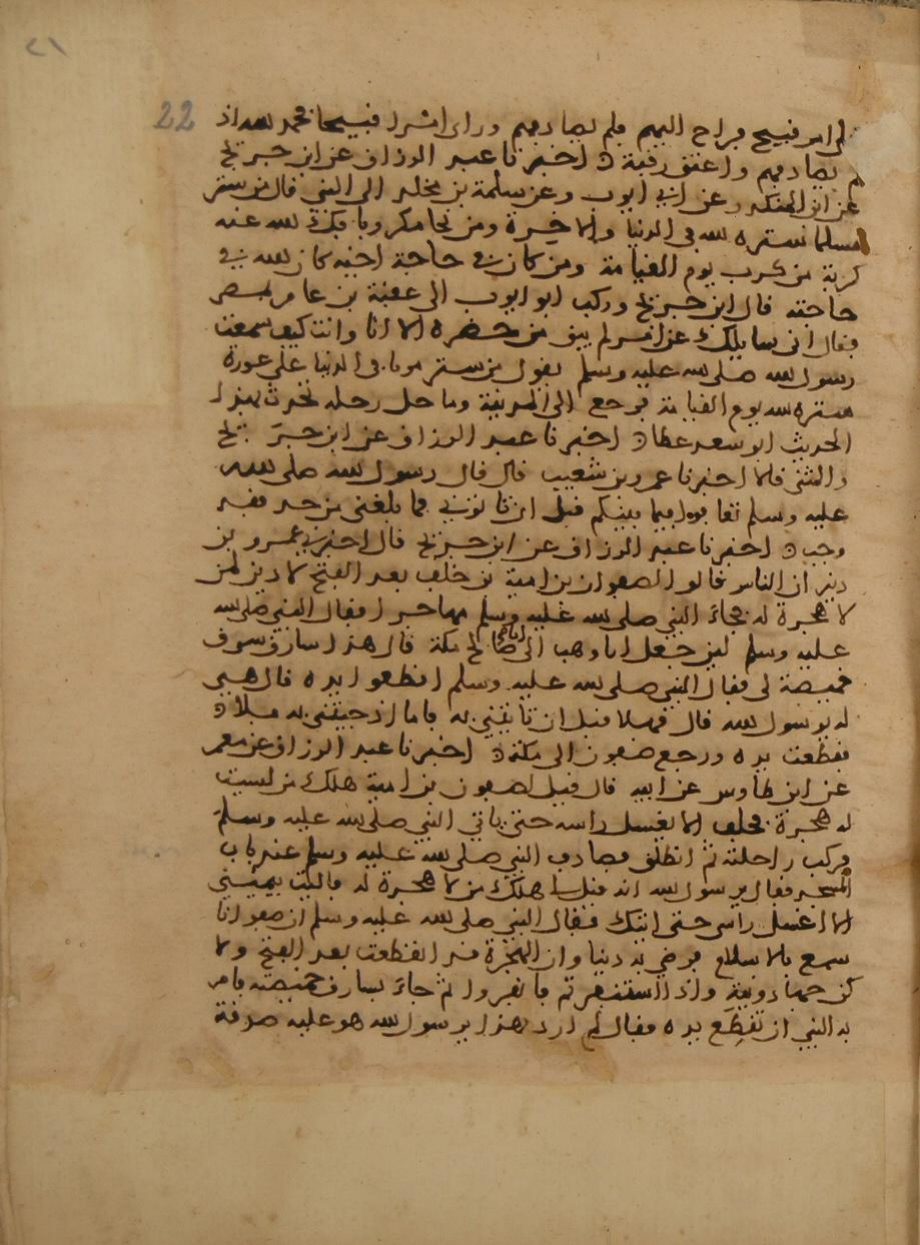 ٢١
22
على امر قبيح فراح اليهم فلم يصادفهم وراى اثرا قبيحا فحمد لله اذ
لم يصادفهم واعتق رقبة اخبرنا عبد الرزاق عن ابن جريج
عن ابن المنكدر عن ابي ايوب وعن سلمة بن مخلد الى النبي قال من ستر
مسلما ستره لله في الدنيا والاخرة ومن نجا مكروبا فك لله عنه
كربة من كرب يوم القيامة ومن كان في حاجة اخيه كان لله في
حاجته قال ابن جريج وركب ابو ايوب الى عقبة بن عامر بمصر
فقال اني سايلك عن امر لم يبق من حضره الا انا وانت كيف سمعت
رسول لله صلى لله عليه وسلم يقول من ستر مومنا في الدنيا على عورة
ستره لله يوم القيامة فرجع الى المدينة وما حل رحله يحدث بهذا
الحديث ابو سعد عطاء اخبرنا عبد الرزاق عن ابن جريج
والمثنى قالا اخبرنا عمرو بن شعيب قال قال رسول لله صلى لله
عليه وسلم تعافوا فيما بينكم قبل ان تاتوني فما بلغني من حد فقد
وجب اخبرنا عبد الرزاق عن ابن جريج قال اخبرني عمرو بن
دينر ان الناس قالوا لصفوان بن امية بن خلف بعد الفتح لا دين لمن
لا هجرة له فجاء النبي صلى لله عليه وسلم مهاجرا فقال النبي صلى لله
عليه وسلم لترجعن ابا وهب الى اباطح مكة قال هذا سارق سرق
خميصة لي فقال النبي صلى لله عليه وسلم اقطعوا يده قال هي
له يرسول لله قال فهلا قبل ان تاتيني به فاما اذ جيتني به فلا
فقطعت يده ورجع صفون الى مكة اخبرنا عبد الرزاق عن معمر
عن ابن طاوس عن ابيه قال قيل لصفون بن امية هلك من ليست
له هجرة فحلف الا يغسل راسه حتى ياتي النبي صلى لله عليه وسلم
فركب راحلته ثم انطلق فصادف النبي صلى لله عليه وسلم عند باب
المسجد فقال يرسول لله انه قيل لي هلك من لا هجرة له فاليت بيميني
الا اغسل راسي حتى اتيك فقال النبي صلى لله عليه وسلم ان صفوانا
سمع بالاسلام فرضي به دينا وان الهجرة قد انقطعت بعد الفتح ولا
كن جهاد ونية واذا استنفرتم فانفروا ثم جاء بسارق خميصته فامر
به النبي ان تقطع يده فقال لم ارد هذا يرسول لله هو عليه صدقة